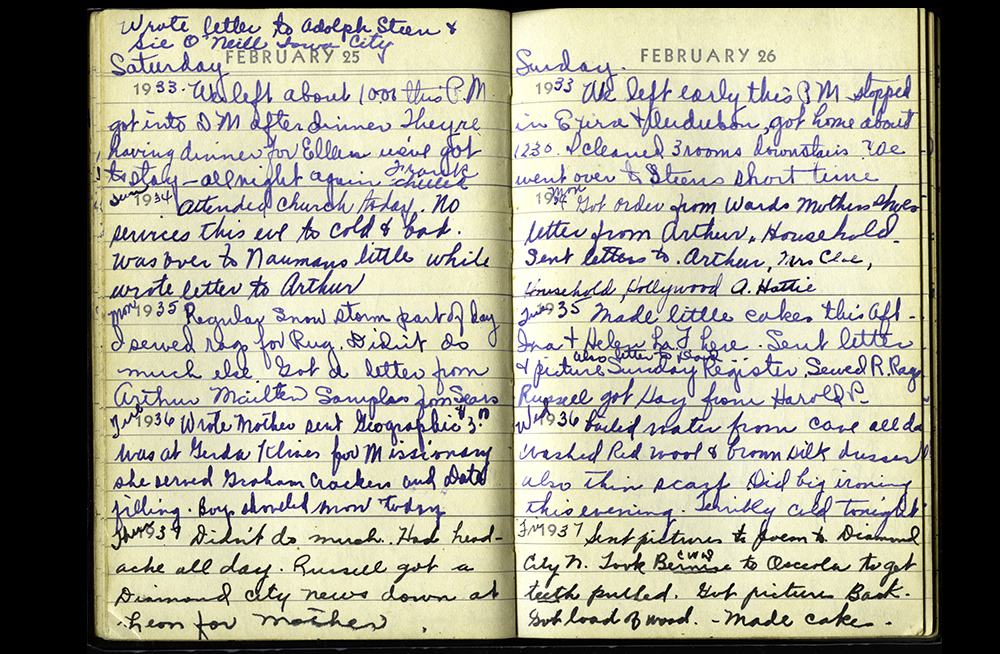 Wrote letter to Adolph Steen &
Sie O'Neill Iowa City
FEBRUARY 25
Saturday
1933. We left about 10 this P.M
got into DM after dinner They're
having dinner for Ellen we've got
to stay - all night again Frank
called
Sun 1934 Attended church today. No
services this eve to cold & bad.
Was over to Naumans little while
wrote letter to Arthur
Mon 1935 Regular Snow storm part of day
I sewed rags for Rug. Didn't do
much else Got a letter from
Arthur Samples from Sears
Tue 1936 Wrote Mother sent Geographic $3.00
Was at Gerda Klines for Missionary
she served Graham Crackers and Date
filling. Boys shoveled snow today
Thur 1937 Didn't do much. Had head-
ache all day. Russell got a
Diamond City news down at
Leon for Mother
FEBRUARY 26
Sunday.
1933 We left early this P M stopped
in Exira & Audubon, got home about
1230. I cleaned 3 rooms downstairs. We
went over to Steens short time
Mon
1934 Got order from Wards Mothers Shoes
letter from Arthur, Household.
Sent letters to. Arthur, Mrs Cloe,
Household, Hollywood A. Hattie
Tue 1935 Made little cakes this Aft -
Ina & Helen La F here. Sent letter
also letter to
& picture Sunday Register, Sewed R. Rags
Russell got Hay from Harold P.
Wed 1936 boiled water from cave all da
washed Red wool & brown silk dresses
also thin scarf Did big ironing
this evening. Terribly cold tonight
Fri 1937 Sent pictures to poem to Diamond
City N. Took Bernise to Osceola to get
teeth pulled. Got pictures Back.
Got load of wood. - Made cakes.